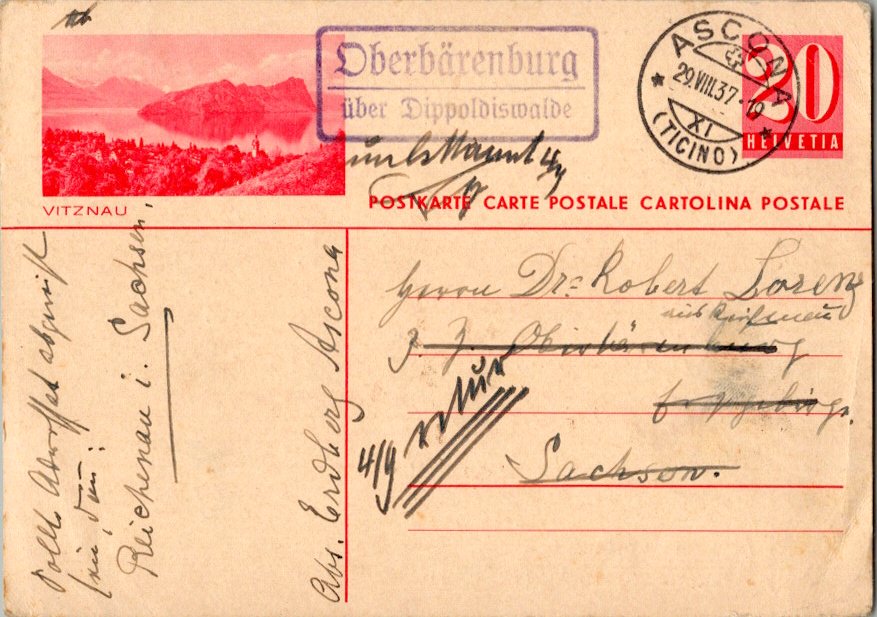 Oberbärenburg
über Dippoldiswalde
ASCONA
29.VIII.37-19
XI
(TICINO)
20
HELVETIA
unbekannt 4/9
VITZNAU
POSTKARTE CARTE POSTALE CARTOLINA POSTALE
Herrn Dr. Robert Lorenz
z. Z. Oberbärenburg
Erzgebirge
Sachsen.
4/9 retur
Abs. Erdberg Ascona
Sollte Adressat abgereist
sein, dann:
Reichenau i. Sachsen,